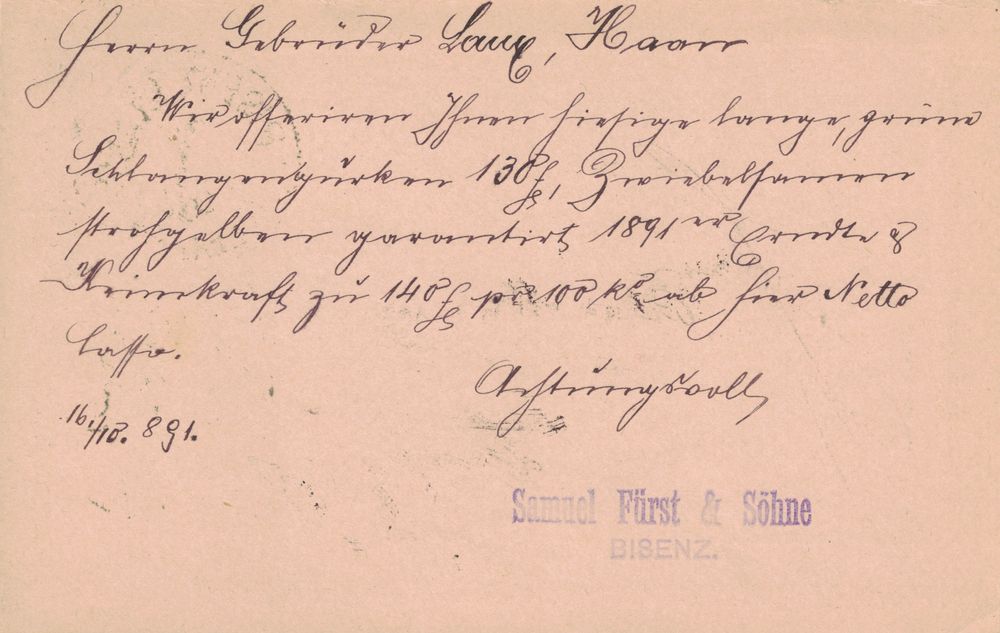 Herrn Gebrüder Laux, Haan
Wir offeriren Ihnen hiesige lange, grüne
Schlangengurken 130 f, Zwiebelsamen
strohgelben garantirt 1891er Erndte &
Keimkraft zu 140 f pr 100 ko ab hier Netto
Cassa.
Achtungsvoll
16./10. 891.
Samuel Fürst & Söhne
BISENZ.